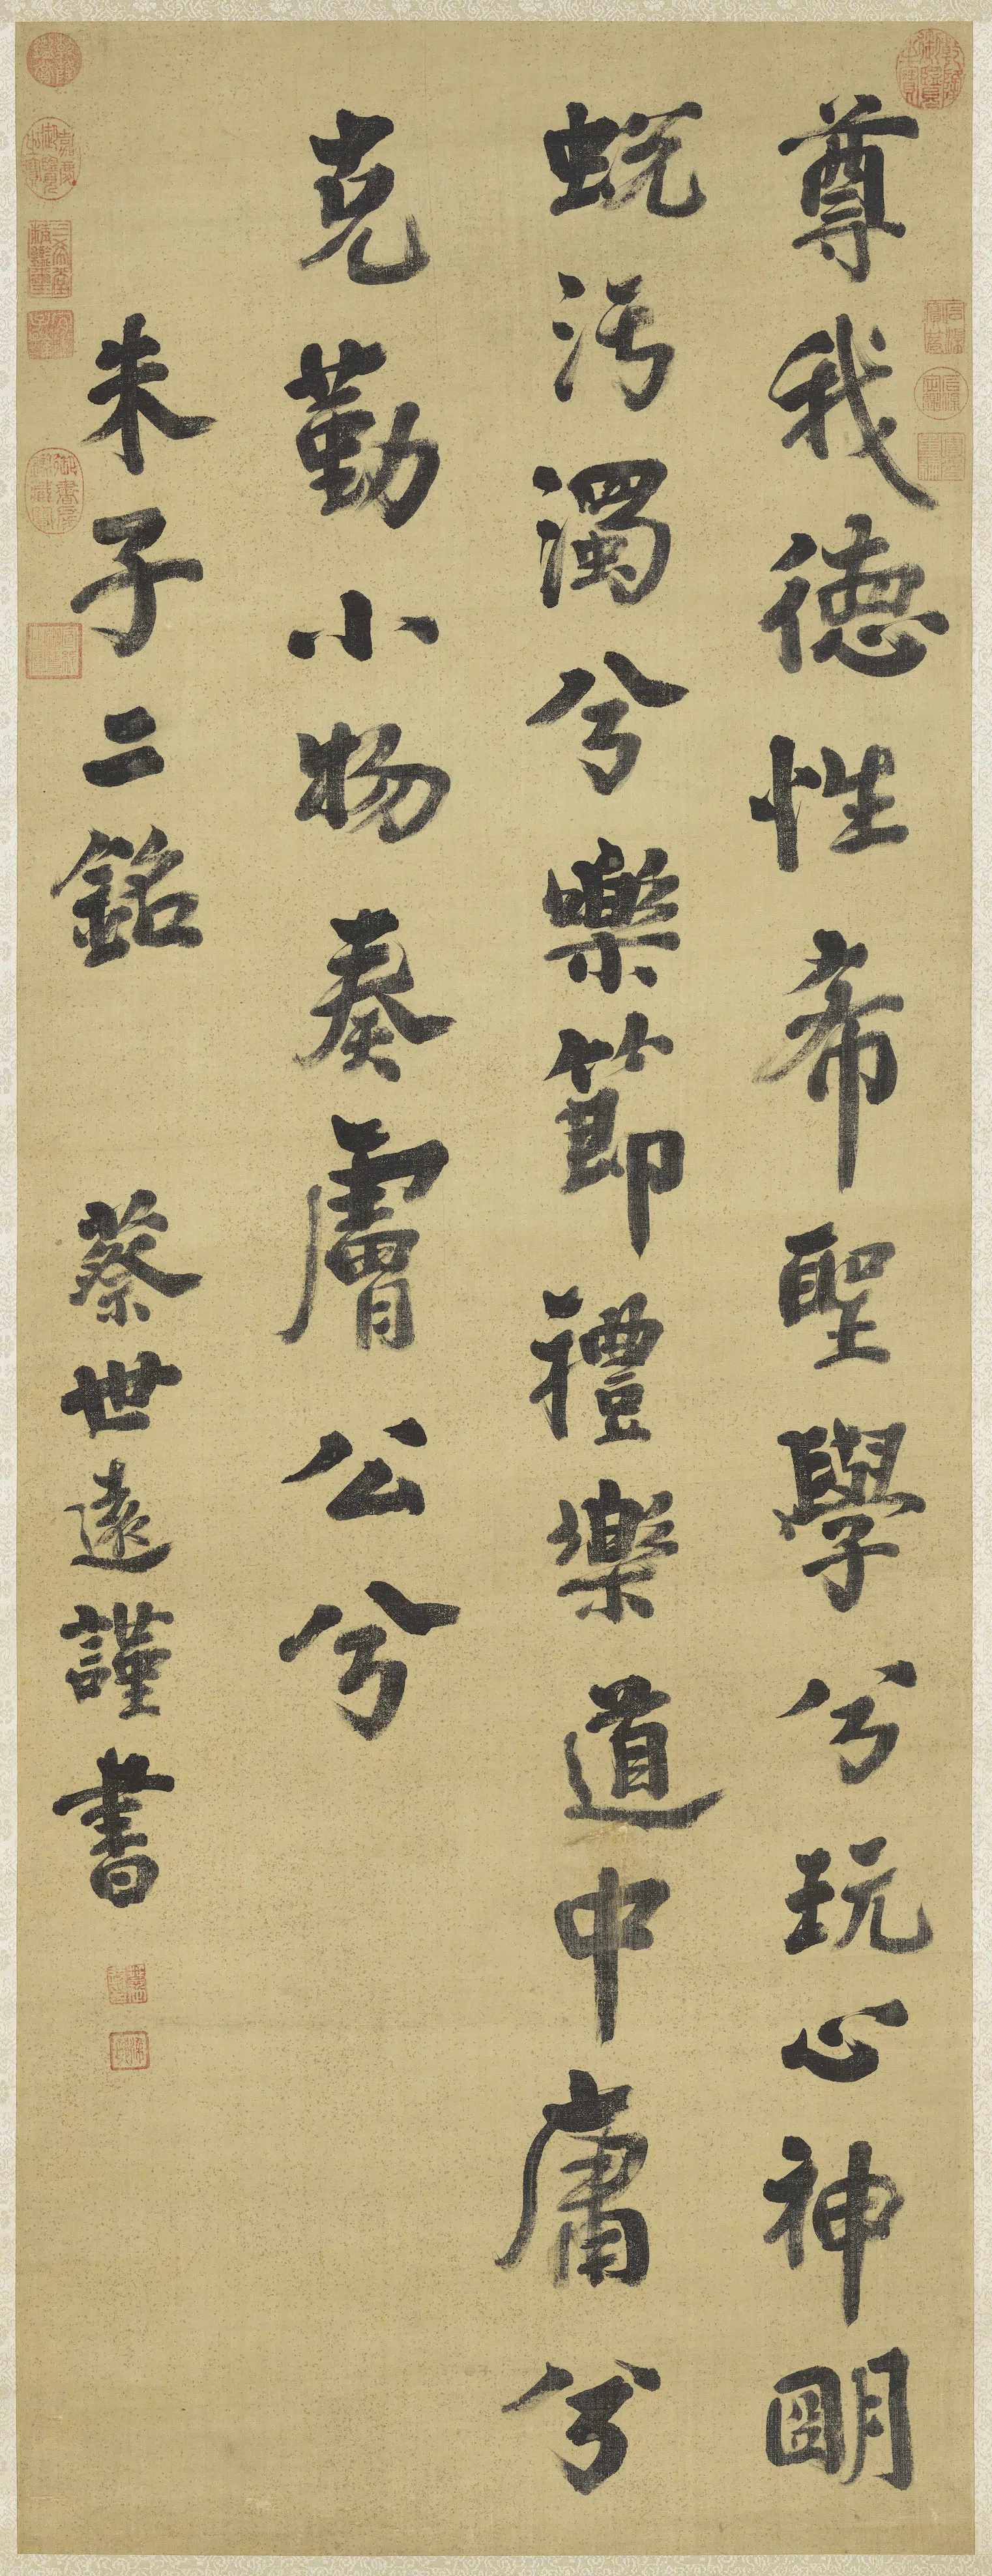 尊我德性希聖學兮玩心神明
蛻污濁兮樂節禮樂道中庸兮
克勤小物奏膚公兮
朱子二銘　蔡世遠謹書